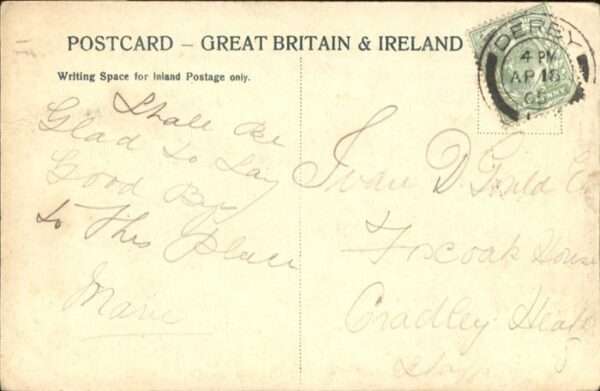 POSTCARD – GREAT BRITAIN & IRELAND
Writing Space for Inland Postage only.
DERBY
4 PM
AP 18
05
PENNY
Shall be
Glad to Say
Good Bye
to This Place
Marie
Ivan D Gould
Foxoak House
Cradley Heath